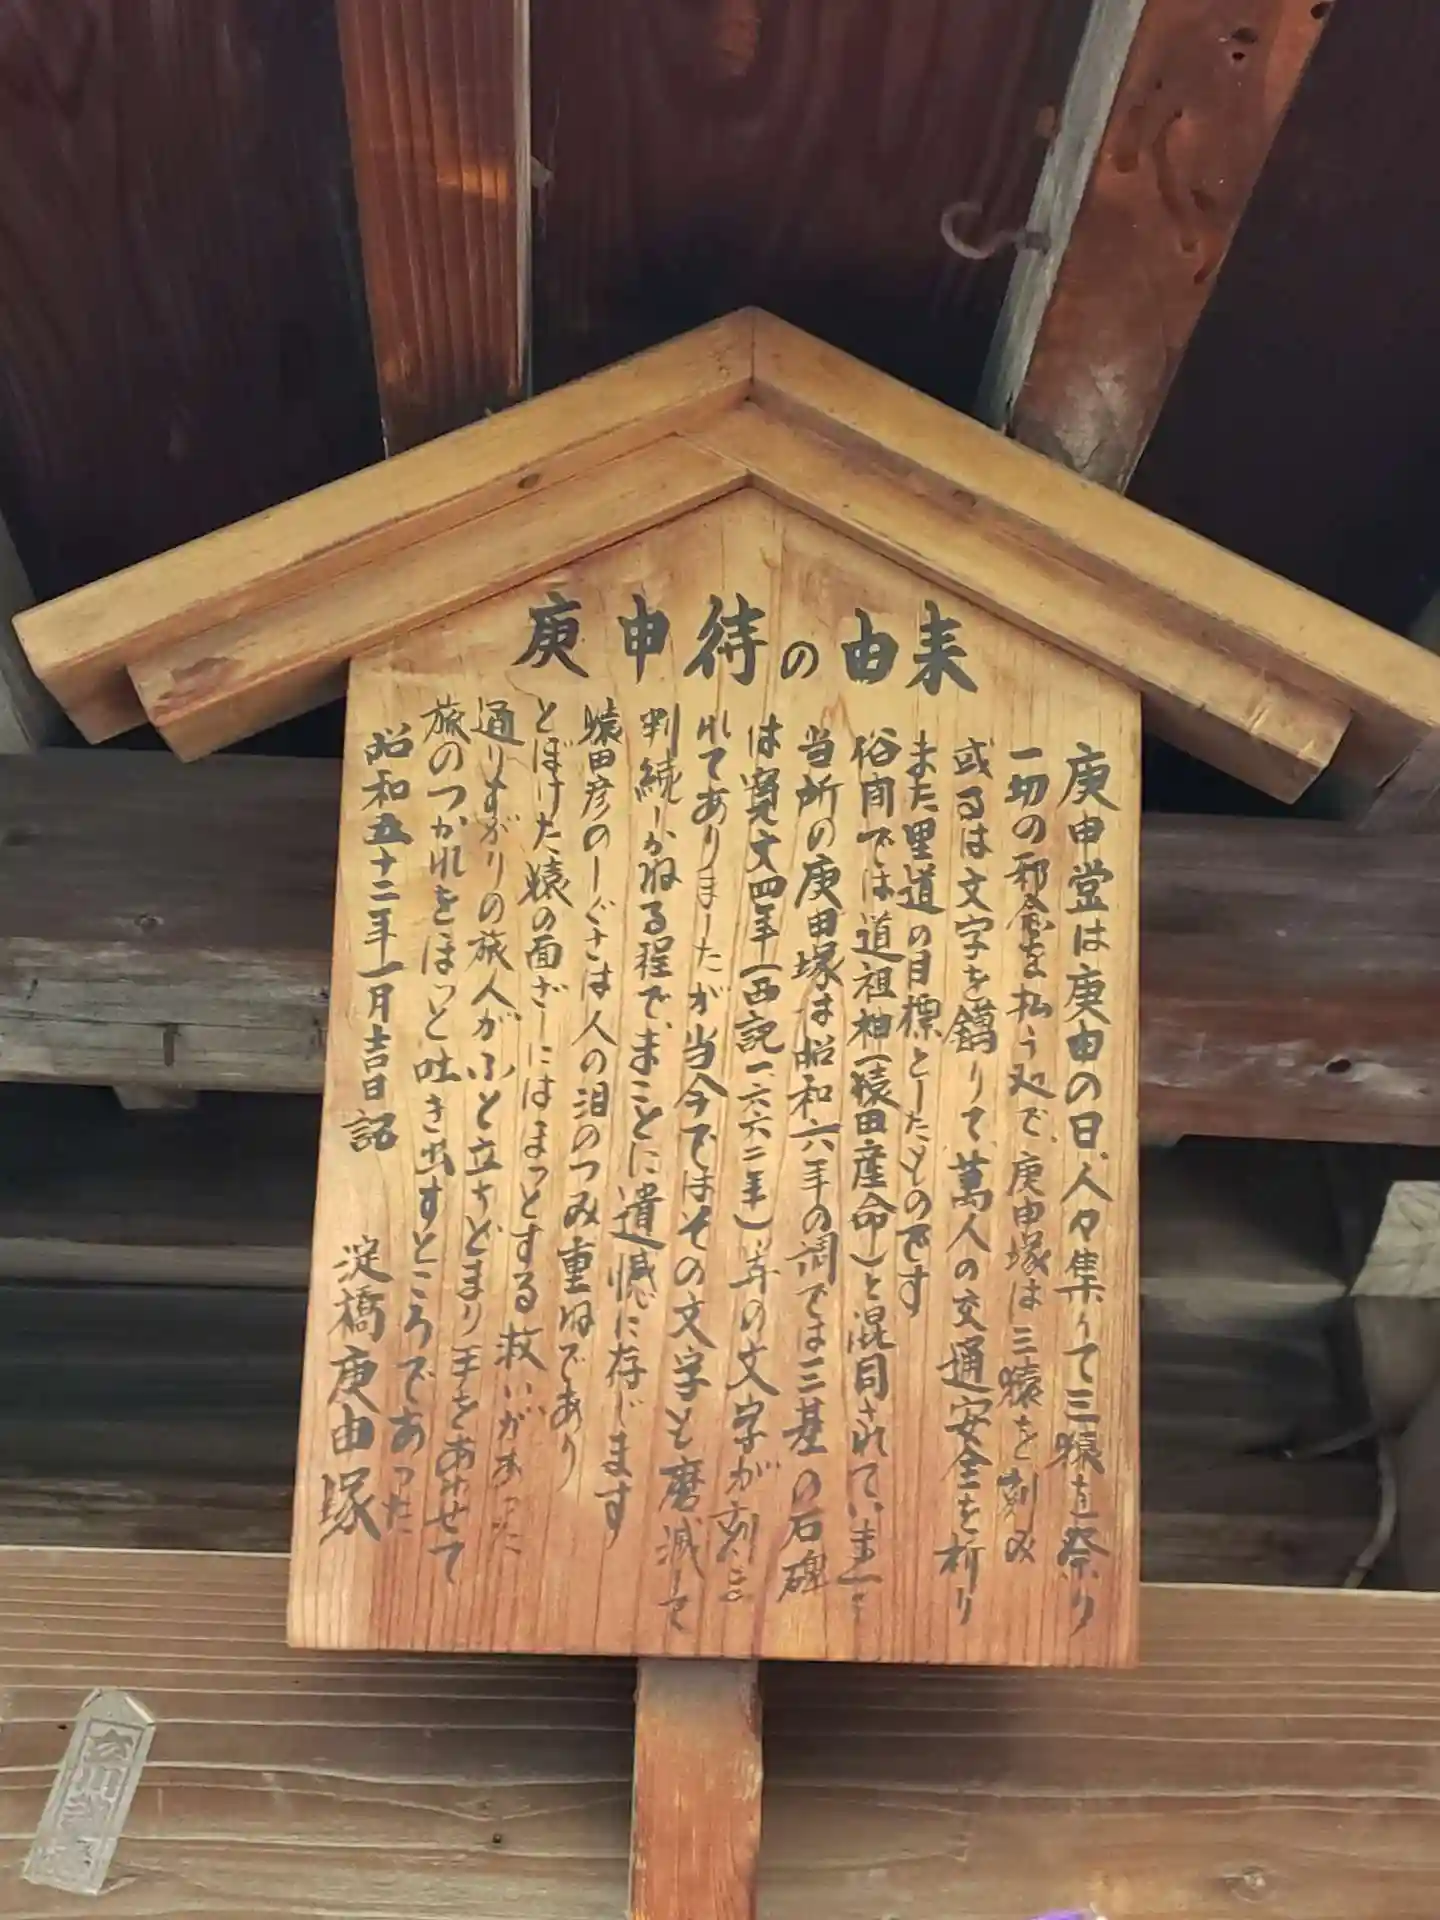 庚申待の由来
庚申堂は庚申の日、人々集りて三猿を祭り
一切の邪念を払う処で、庚申塚は三猿を刻み
或るは文字を鐫りて、萬人の交通安全を祈り
また里道の目標としたものです
俗間では道祖神(猿田産命)と混同されています
当所の庚申塚は昭和六年の調では三基の石碑
は寛文四年(西記一六六二年)等の文字が刻ま
れてありましたが当今ではその文字も磨滅して
判続しかねる程で、まことに遺憾に存じます
猿田彦のしぐさは人の泪のつみ重ねであり
とぼけた猿の面ざしにはほっとする救いがあった
通りすがりの旅人がふと立ちどまり手をあわせて
旅のつかれをほっと吐き出すところであった
昭和五十二年一月吉日記
淀橋庚申塚